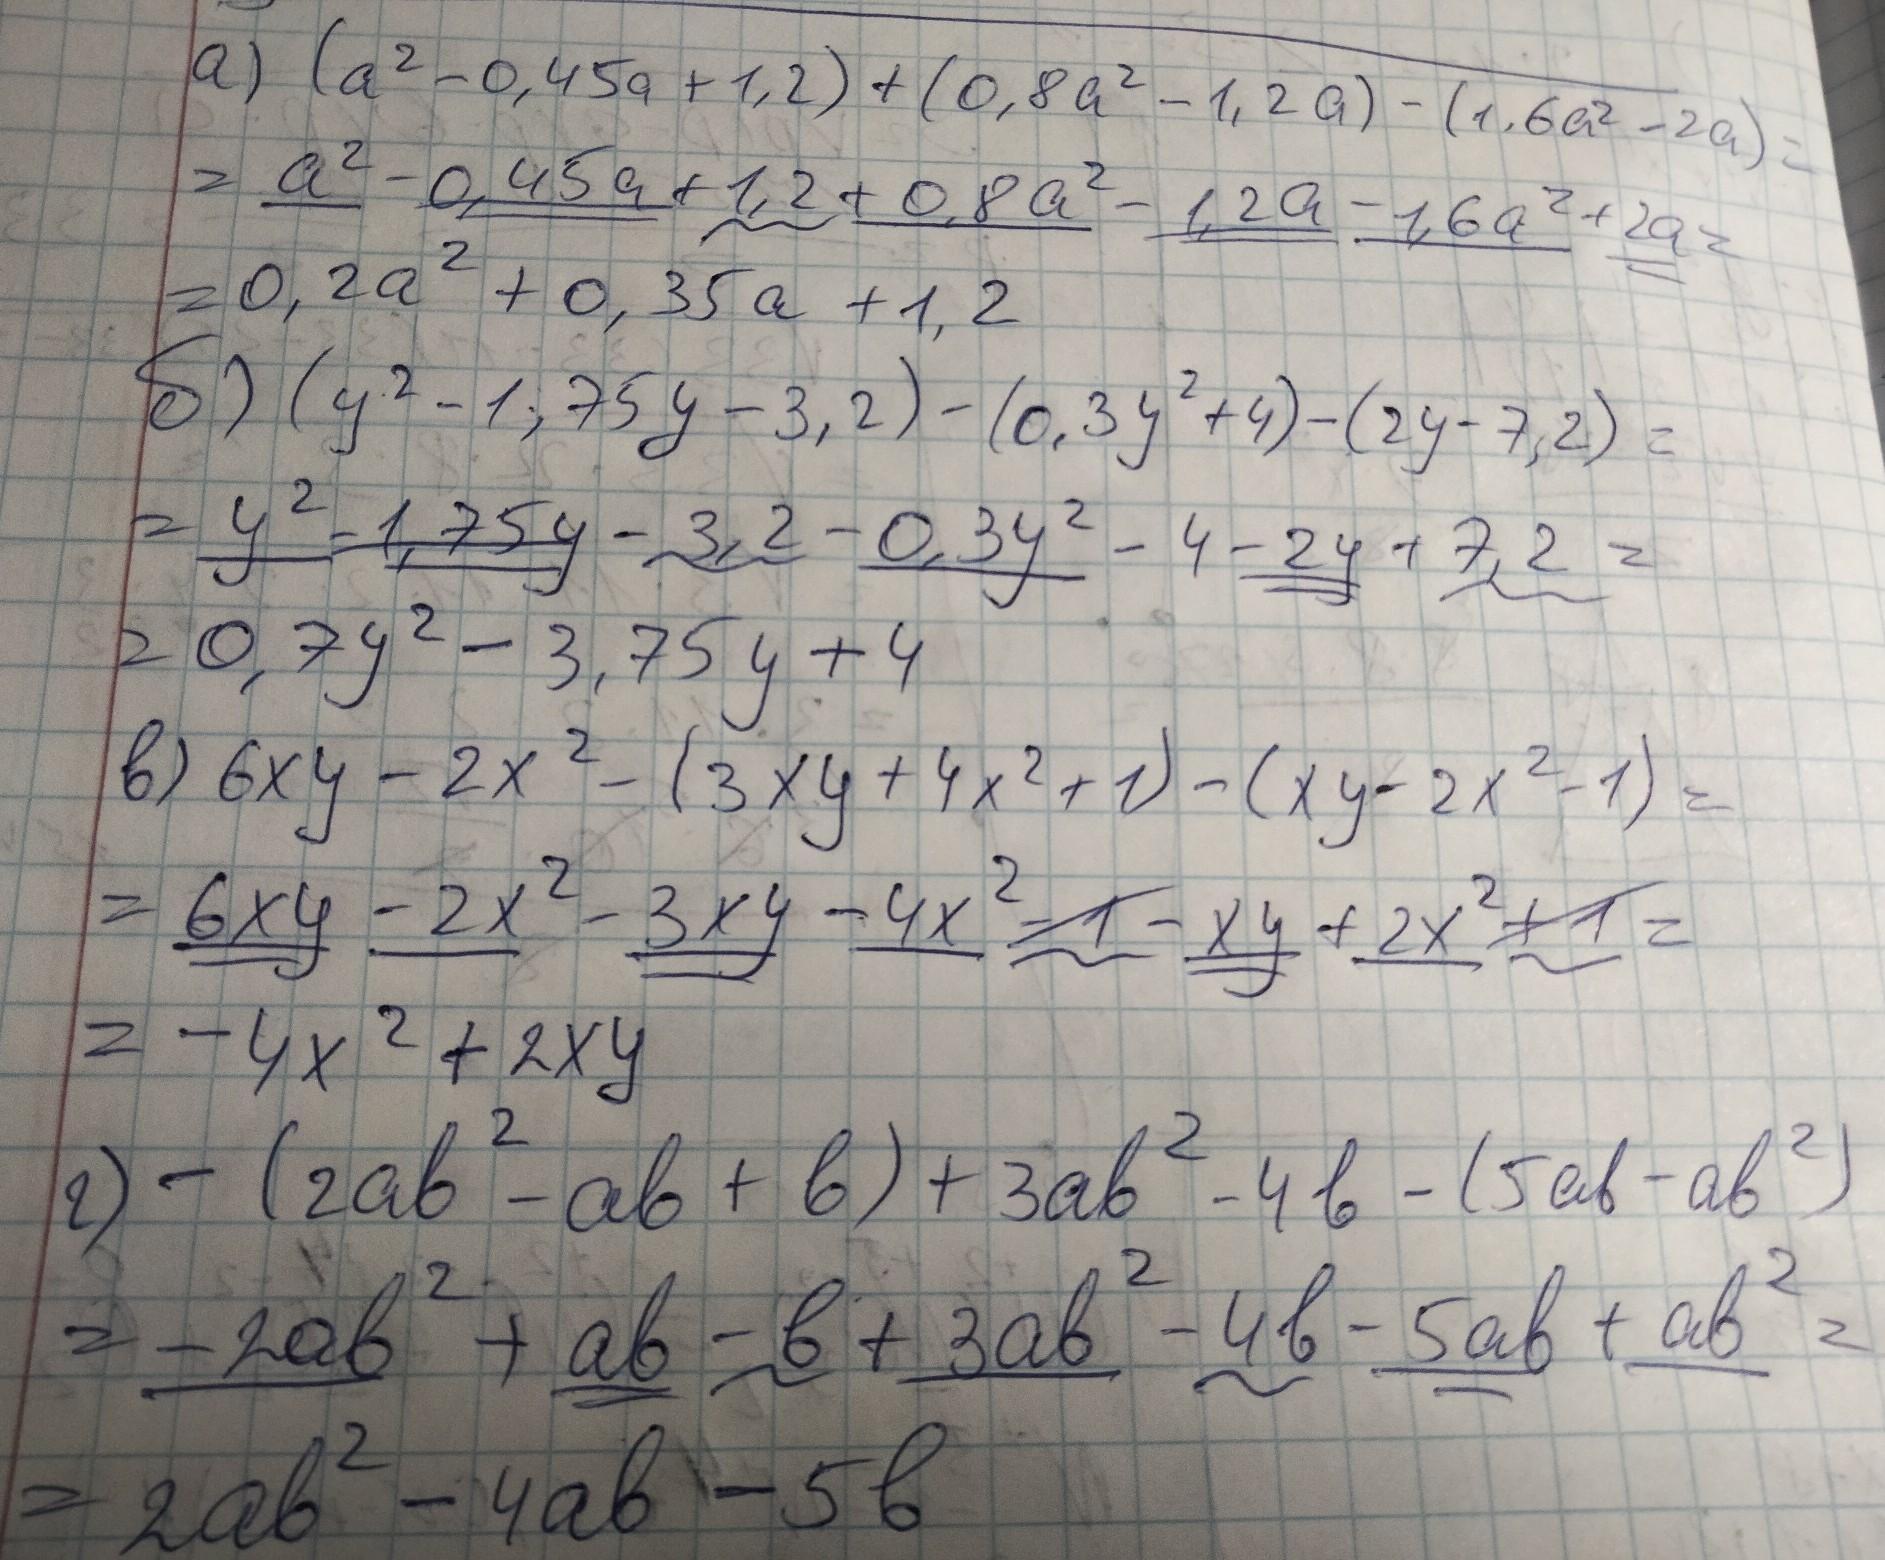 а) (a² - 0,45a + 1,2) + (0,8a² - 1,2a) - (1,6a² - 2a) =
= a² - 0,45a + 1,2 + 0,8a² - 1,2a - 1,6a² + 2a =
= 0,2a² + 0,35a + 1,2
б) (y² - 1,75y - 3,2) - (0,3y² + 4) - (2y - 7,2) =
= y² - 1,75y - 3,2 - 0,3y² - 4 - 2y + 7,2 =
= 0,7y² - 3,75y + 4
в) 6xy - 2x² - (3xy + 4x² + 1) - (xy - 2x² - 1) =
= 6xy - 2x² - 3xy - 4x² - 1 - xy + 2x² + 1 =
= -4x² + 2xy
г) - (2ab² - ab + b) + 3ab² - 4b - (5ab - ab²)
= -2ab² + ab - b + 3ab² - 4b - 5ab + ab² =
= 2ab² - 4ab - 5b